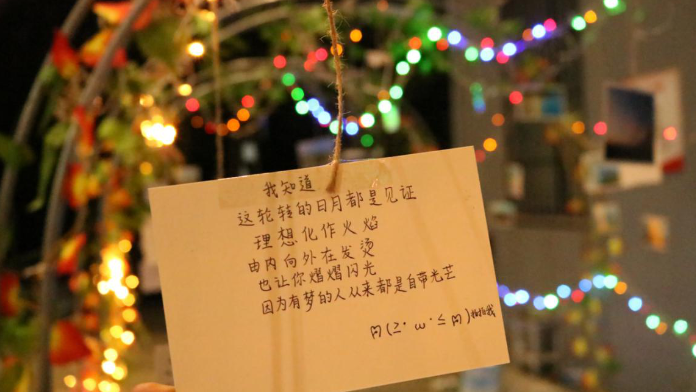 我知道
这轮转的日月都是见证
理想化作火焰
由内向外在发烫
也让你熠熠闪光
因为有梦的人从来都是自带光芒